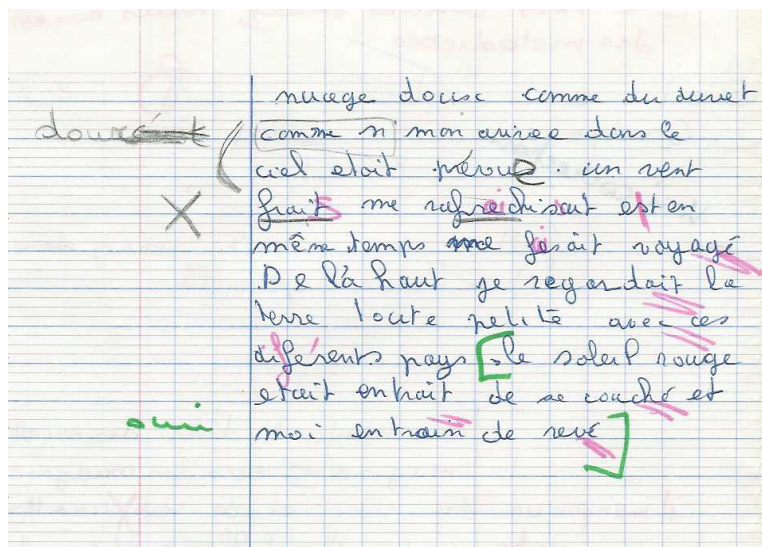 nuage doux comme du duvet
doux
comme si mon arivee dans le
ciel etait prévue. un vent
X frait me rafrechisait est en
même temps me fesait voyagé
. De là haut je regardait la
terre toute petite avec ces
diférents pays. le soleil rouge
etait entrait de se couché et
oui moi entrain de revé